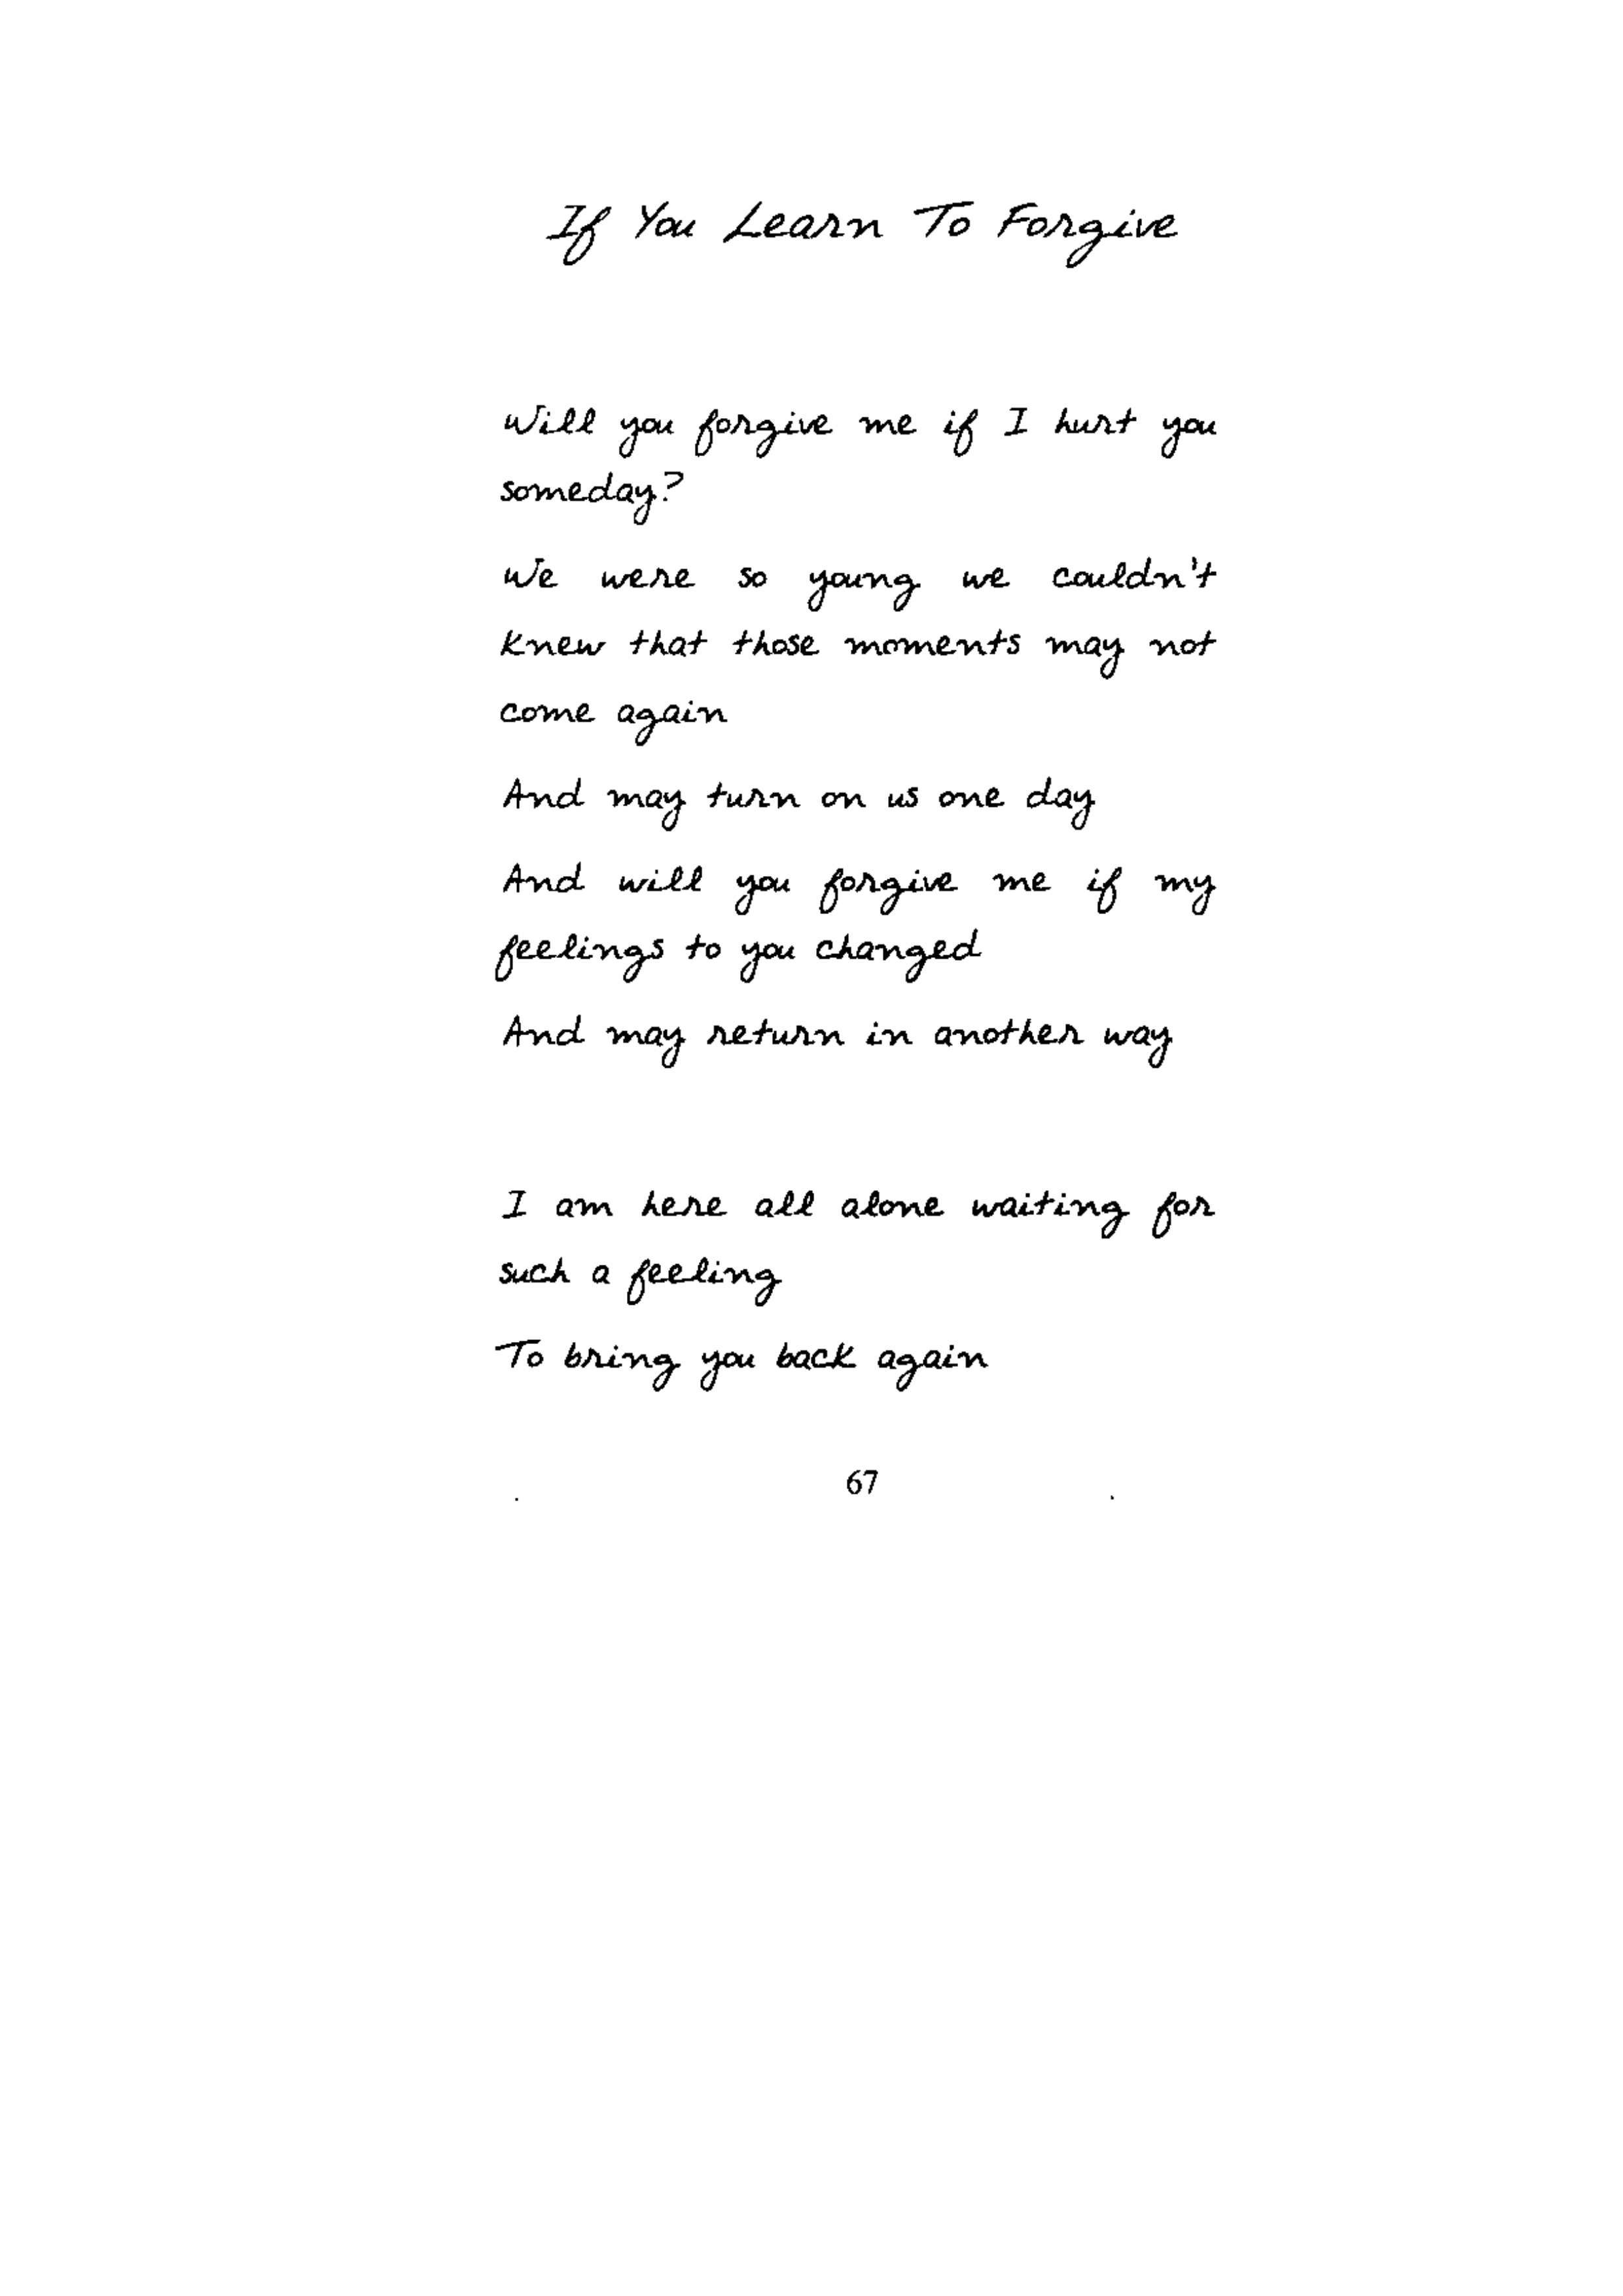 If You Learn To Forgive
Will you forgive me if I hurt you
someday?
We were so young we couldn't
knew that those moments may not
come again
And may turn on us one day
And will you forgive me if my
feelings to you changed
And may return in another way
I am here all alone waiting for
such a feeling
To bring you back again
67